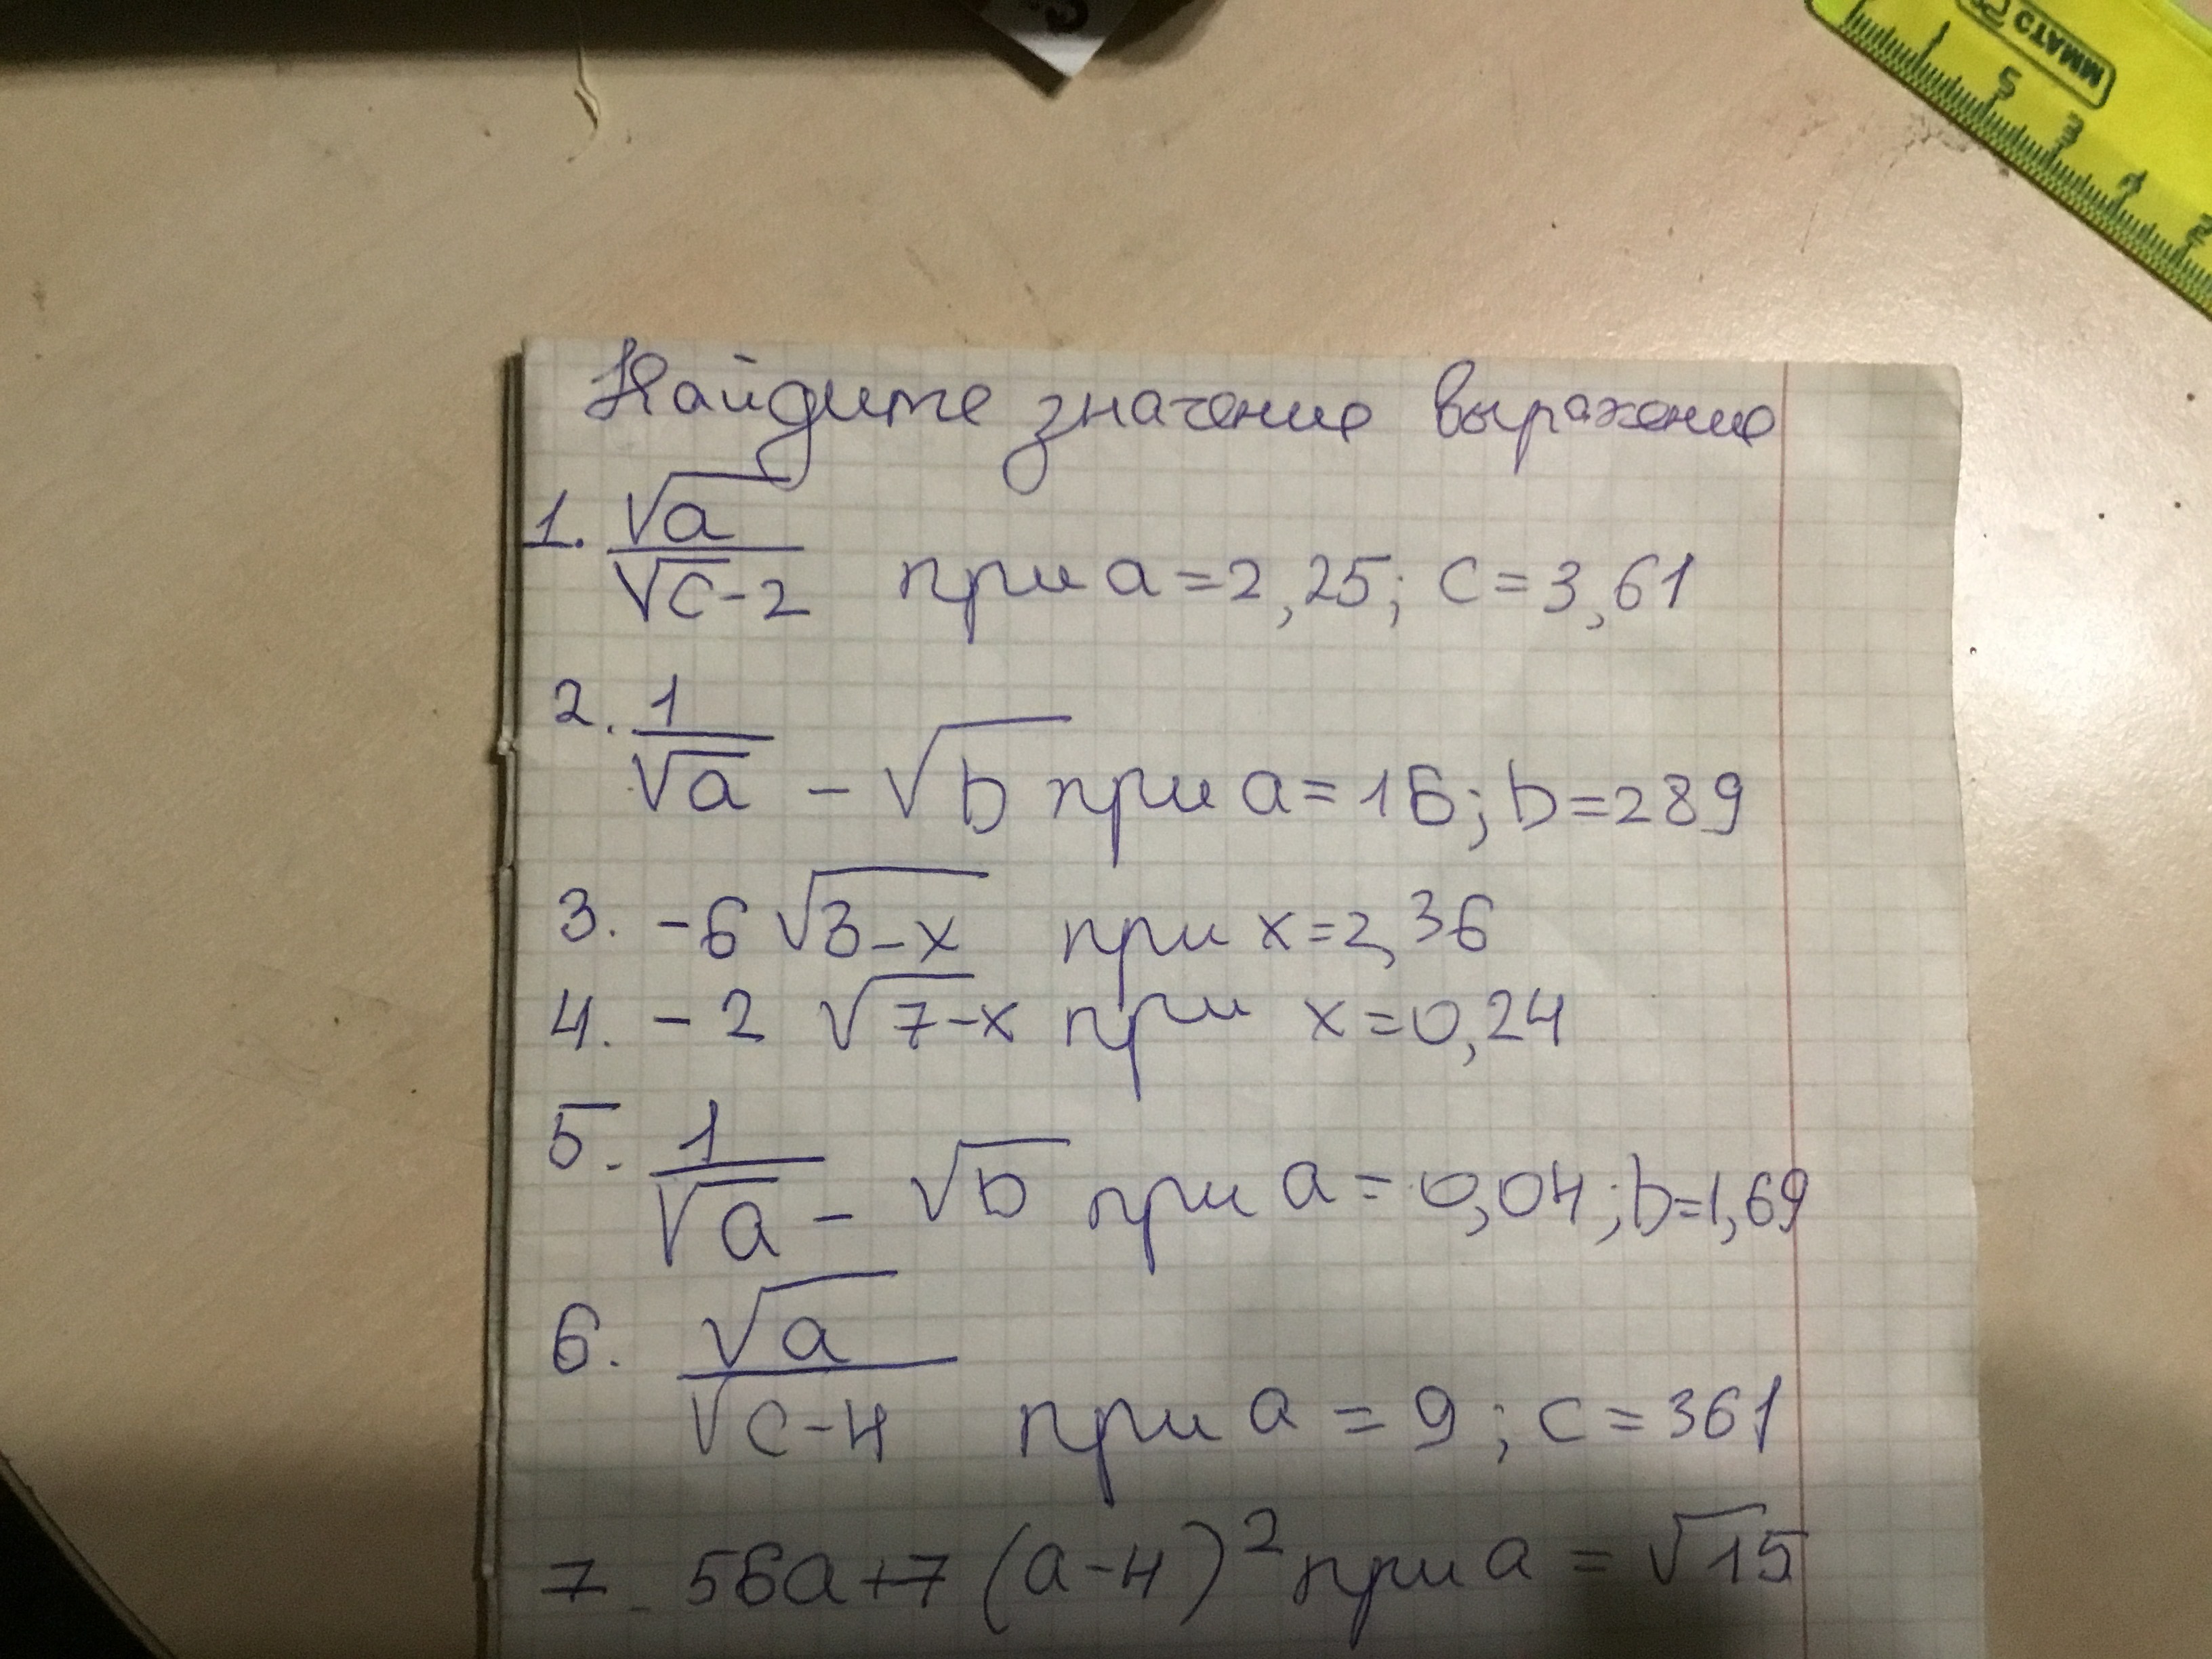 СТАММ
1 2 3 4 5
Найдите значение выражение
1. √a / √c-2 при a=2,25; c=3,61
2. 1/√a - √b при a=16; b=289
3. -6 √3-x при x=2,36
4. -2 √7-x при x=0,24
5. 1/√a - √b при a=0,04; b=1,69
6. √a / √c-4 при a=9; c=361
7. 56a+7(a-4)² при a=√15